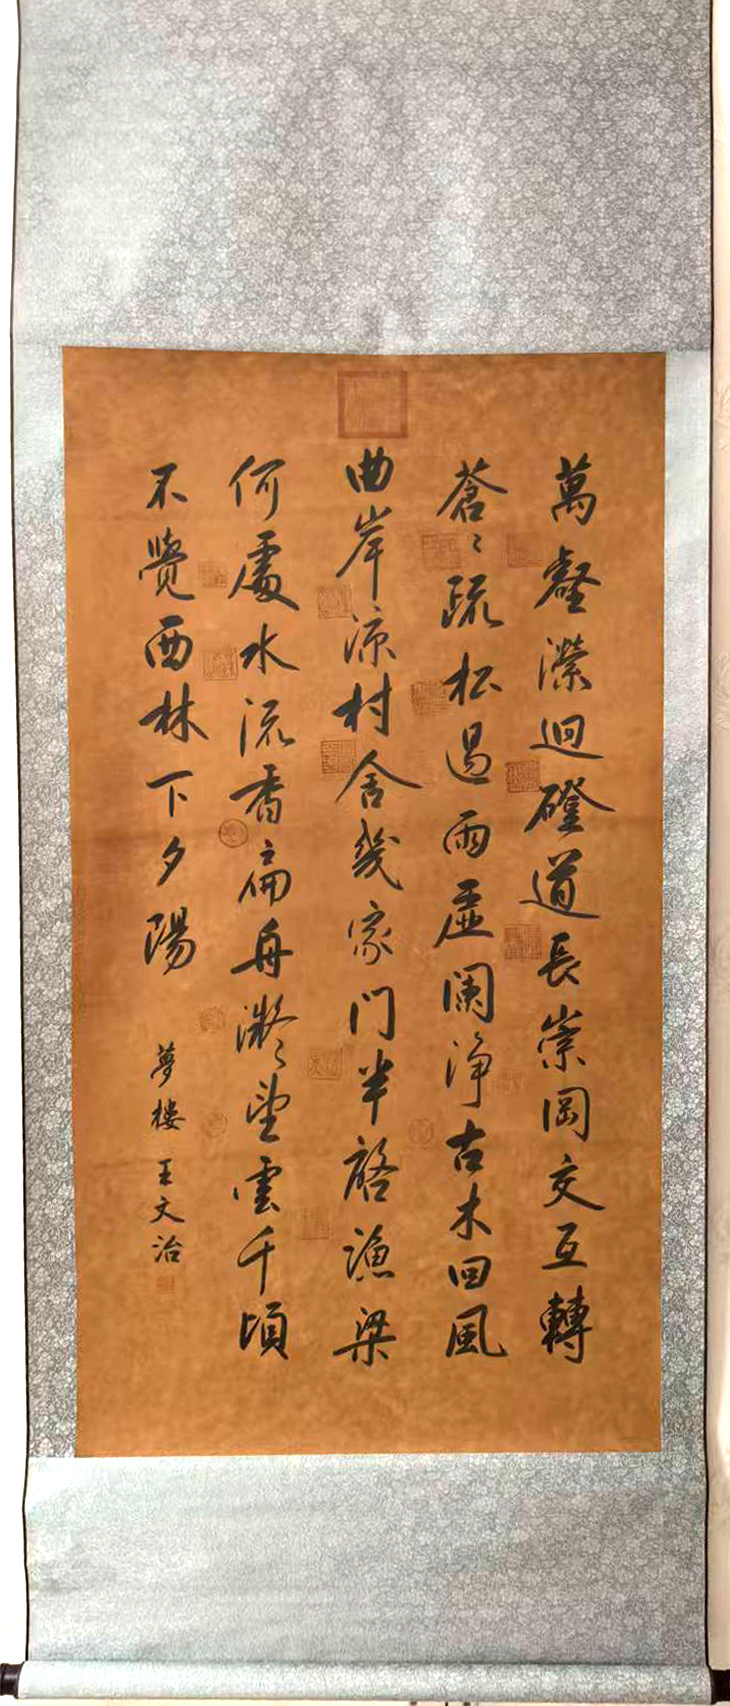 萬壑瀠迴磴道長崇岡交互轉
蒼〻疏松過雨虛闌浄古木回風
曲岸凉村舍幾家門半啓漁梁
何處水流香扁舟凝〻望雲千頃
不覺西林下夕陽
夢樓王文治